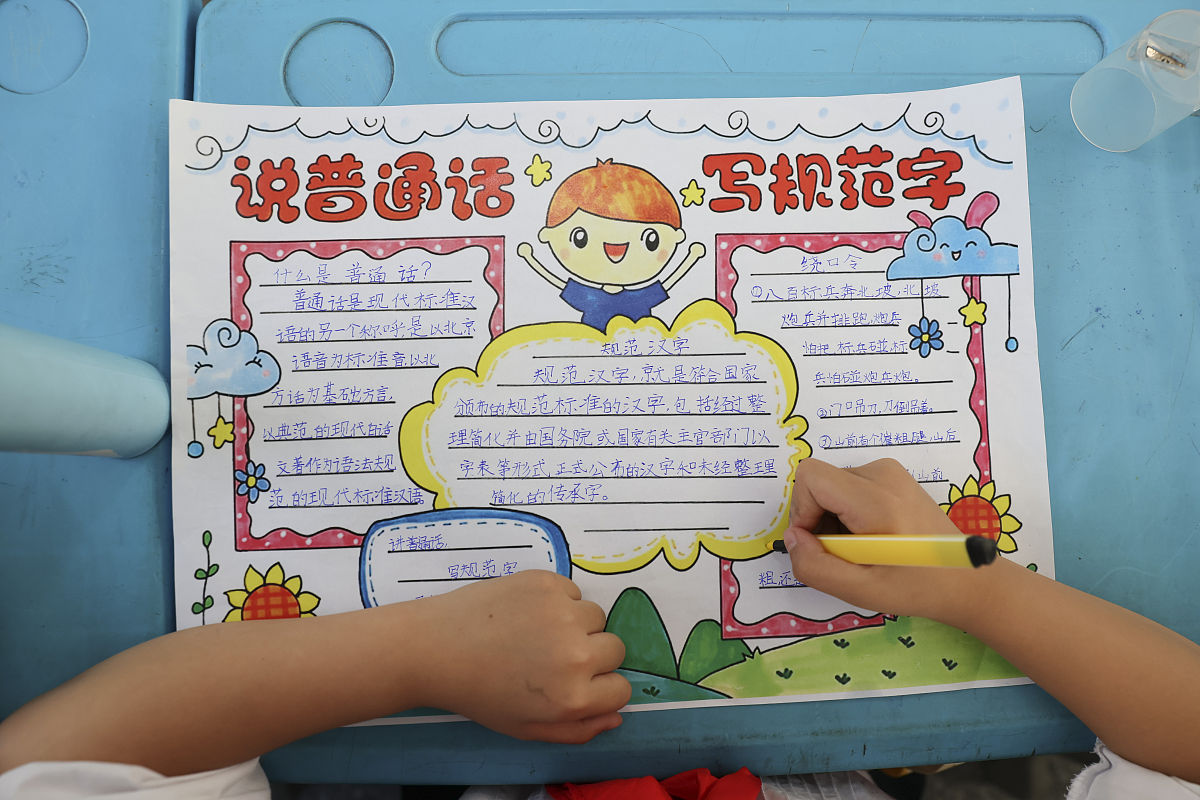 说普通话 写规范字
什么是普通话?
普通话是现代标准汉
语的另一个称呼,是以北京
语音为标准音,以北
方话为基础方言,
以典范的现代白话
文著作为语法规
范的现代标准汉语。
规范汉字
规范汉字,就是符合国家
颁布的规范标准的汉字,包括经过整
理简化并由国务院或国家有关主管部门以
字表等形式正式公布的汉字和未经整理
简化的传承字。
绕口令
①八百标兵奔北坡,北坡
炮兵并排跑,炮兵
怕把标兵碰,标
兵怕碰炮兵炮。
②门口吊刀,刀倒吊着。
③山前有个崔粗腿,山后
山前
粗,还
讲普通话,
写规范字